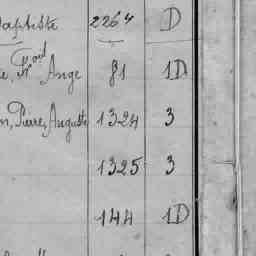 Baptiste 2264 D
e, Nt Ange 81 1D
n, Pierre, Auguste 1324 3
1325 3
144 1D